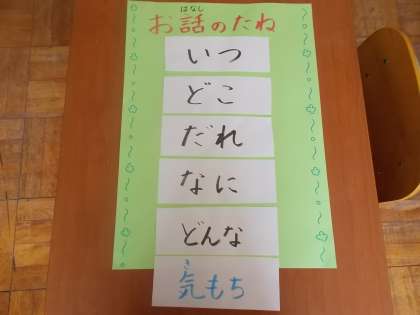 お話のたね
いつ
どこ
だれ
なに
どんな
気もち